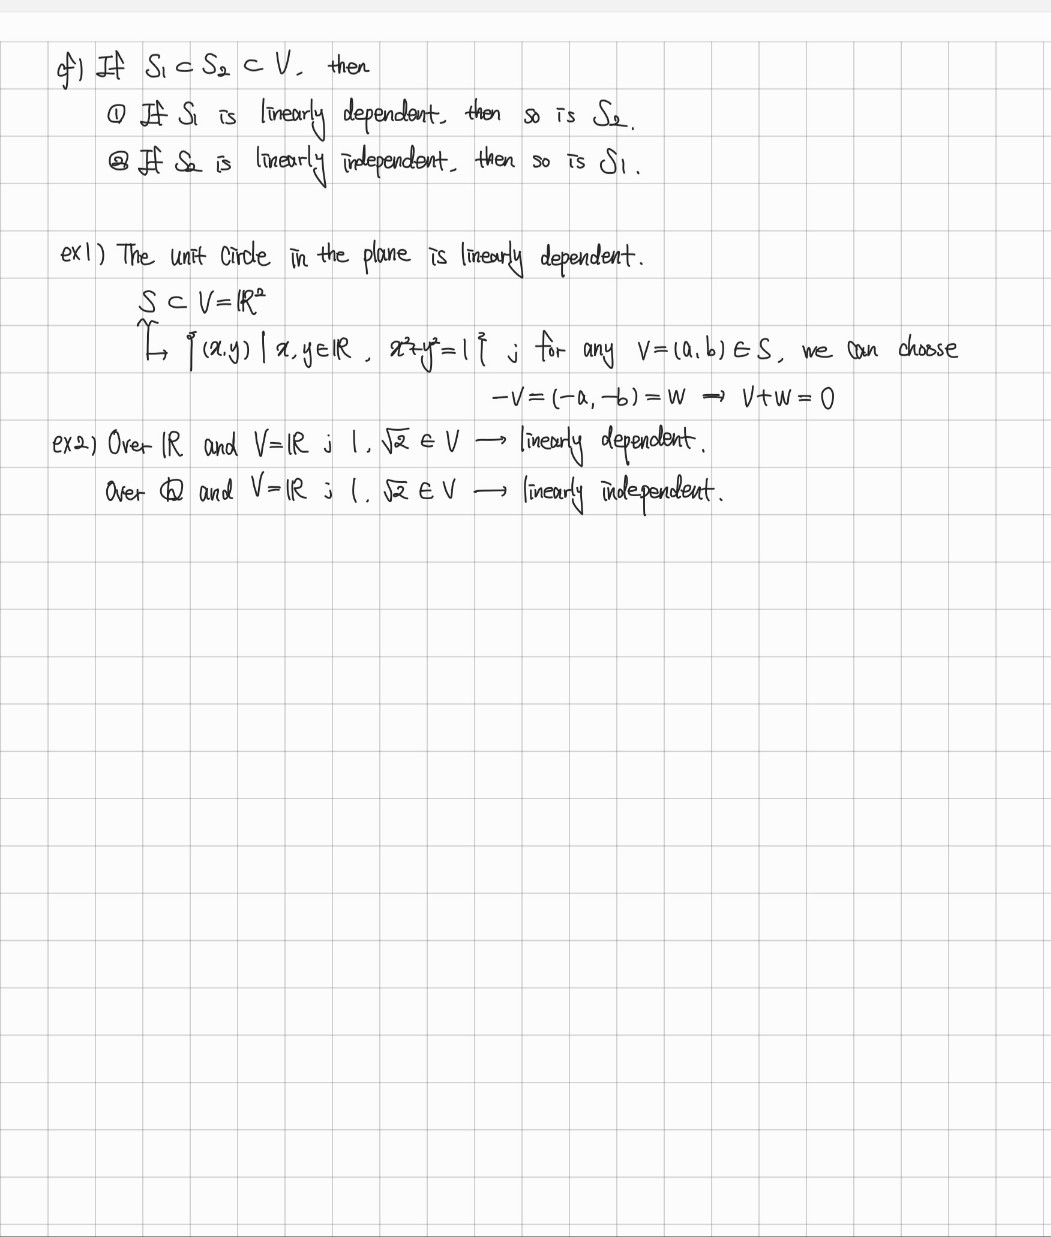 cf) If S₁ ⊂ S₂ ⊂ V, then
① If S₁ is linearly dependent, then so is S₂.
② If S₂ is linearly independent, then so is S₁.
ex1) The unit circle in the plane is linearly dependent.
S ⊂ V = ℝ²
↳ {(x,y) | x,y∈ℝ, x²+y²=1} ; for any v=(a,b) ∈ S, we can choose
-v = (-a,-b) = w → v+w = 0
ex2) Over ℝ and V=ℝ ; 1, √2 ∈ V → linearly dependent.
Over ℚ and V=ℝ ; 1, √2 ∈ V → linearly independent.